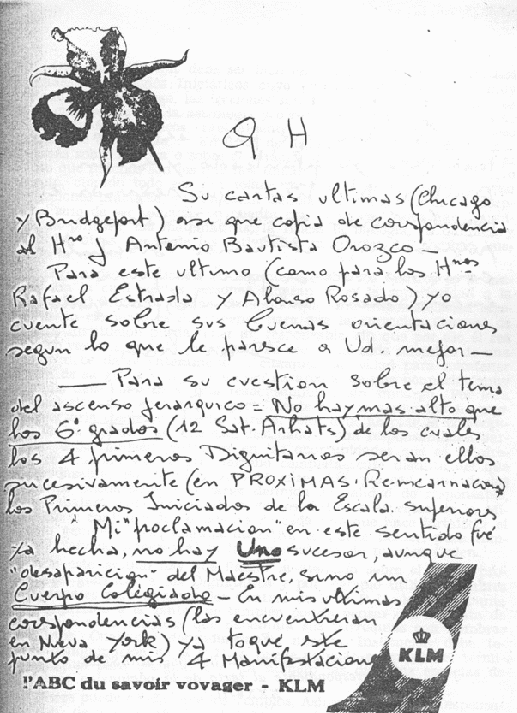 Q H
Su cartas ultimas (Chicago
y Bridgeport) asi que copia de corespondencia
al Hno J Antonio Bautista Orozco -
Para este ultimo (como para los Hnos
Rafael Estrada y Alonso Rosado) yo
cuente sobre sus buenas orientaciones
segun lo que le paresce a Ud. mejor -
- Para su cuestion sobre el tema
del ascenso jerarquico = No hay mas alto que
los 6º grados (12 Sat-Arhats) de los cuales
los 4 primeros Dignitarios seran ellos
sucesivamente (en PROXIMAS Re-encarnacion)
los Primeros Iniciados de la Escala superiors
Mi "proclamacion" en este sentido fué
ya hecha, no hay Uno sucesor, aunque
"desaparicion" del Maestre, sino un
Cuerpo Colegiado - En mis ultimas
corespondencias (las encuentreran
en Nueva York) ya toque este
punto de mis 4 Manifestacion
KLM
l'ABC du savoir voyager - KLM